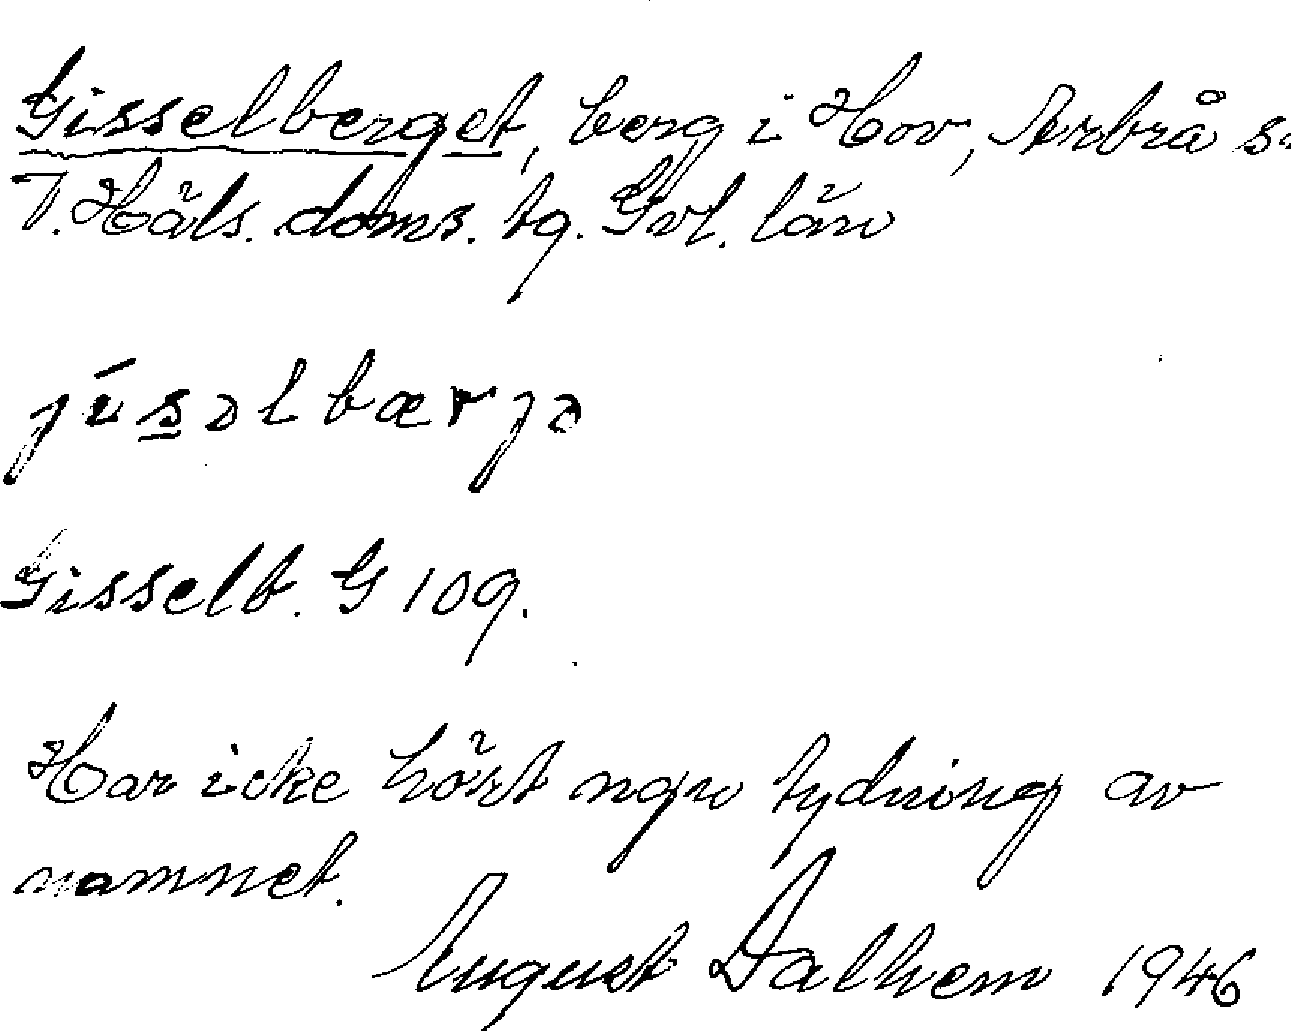 Gisselberget, berg i Hov, Arbrå s
V. Häls. doms. tg. Gvl. län
júsəlbærjə
Gisselb. G 109.
Har icke hört ngn tydning av
namnet.
August Dalhem 1946